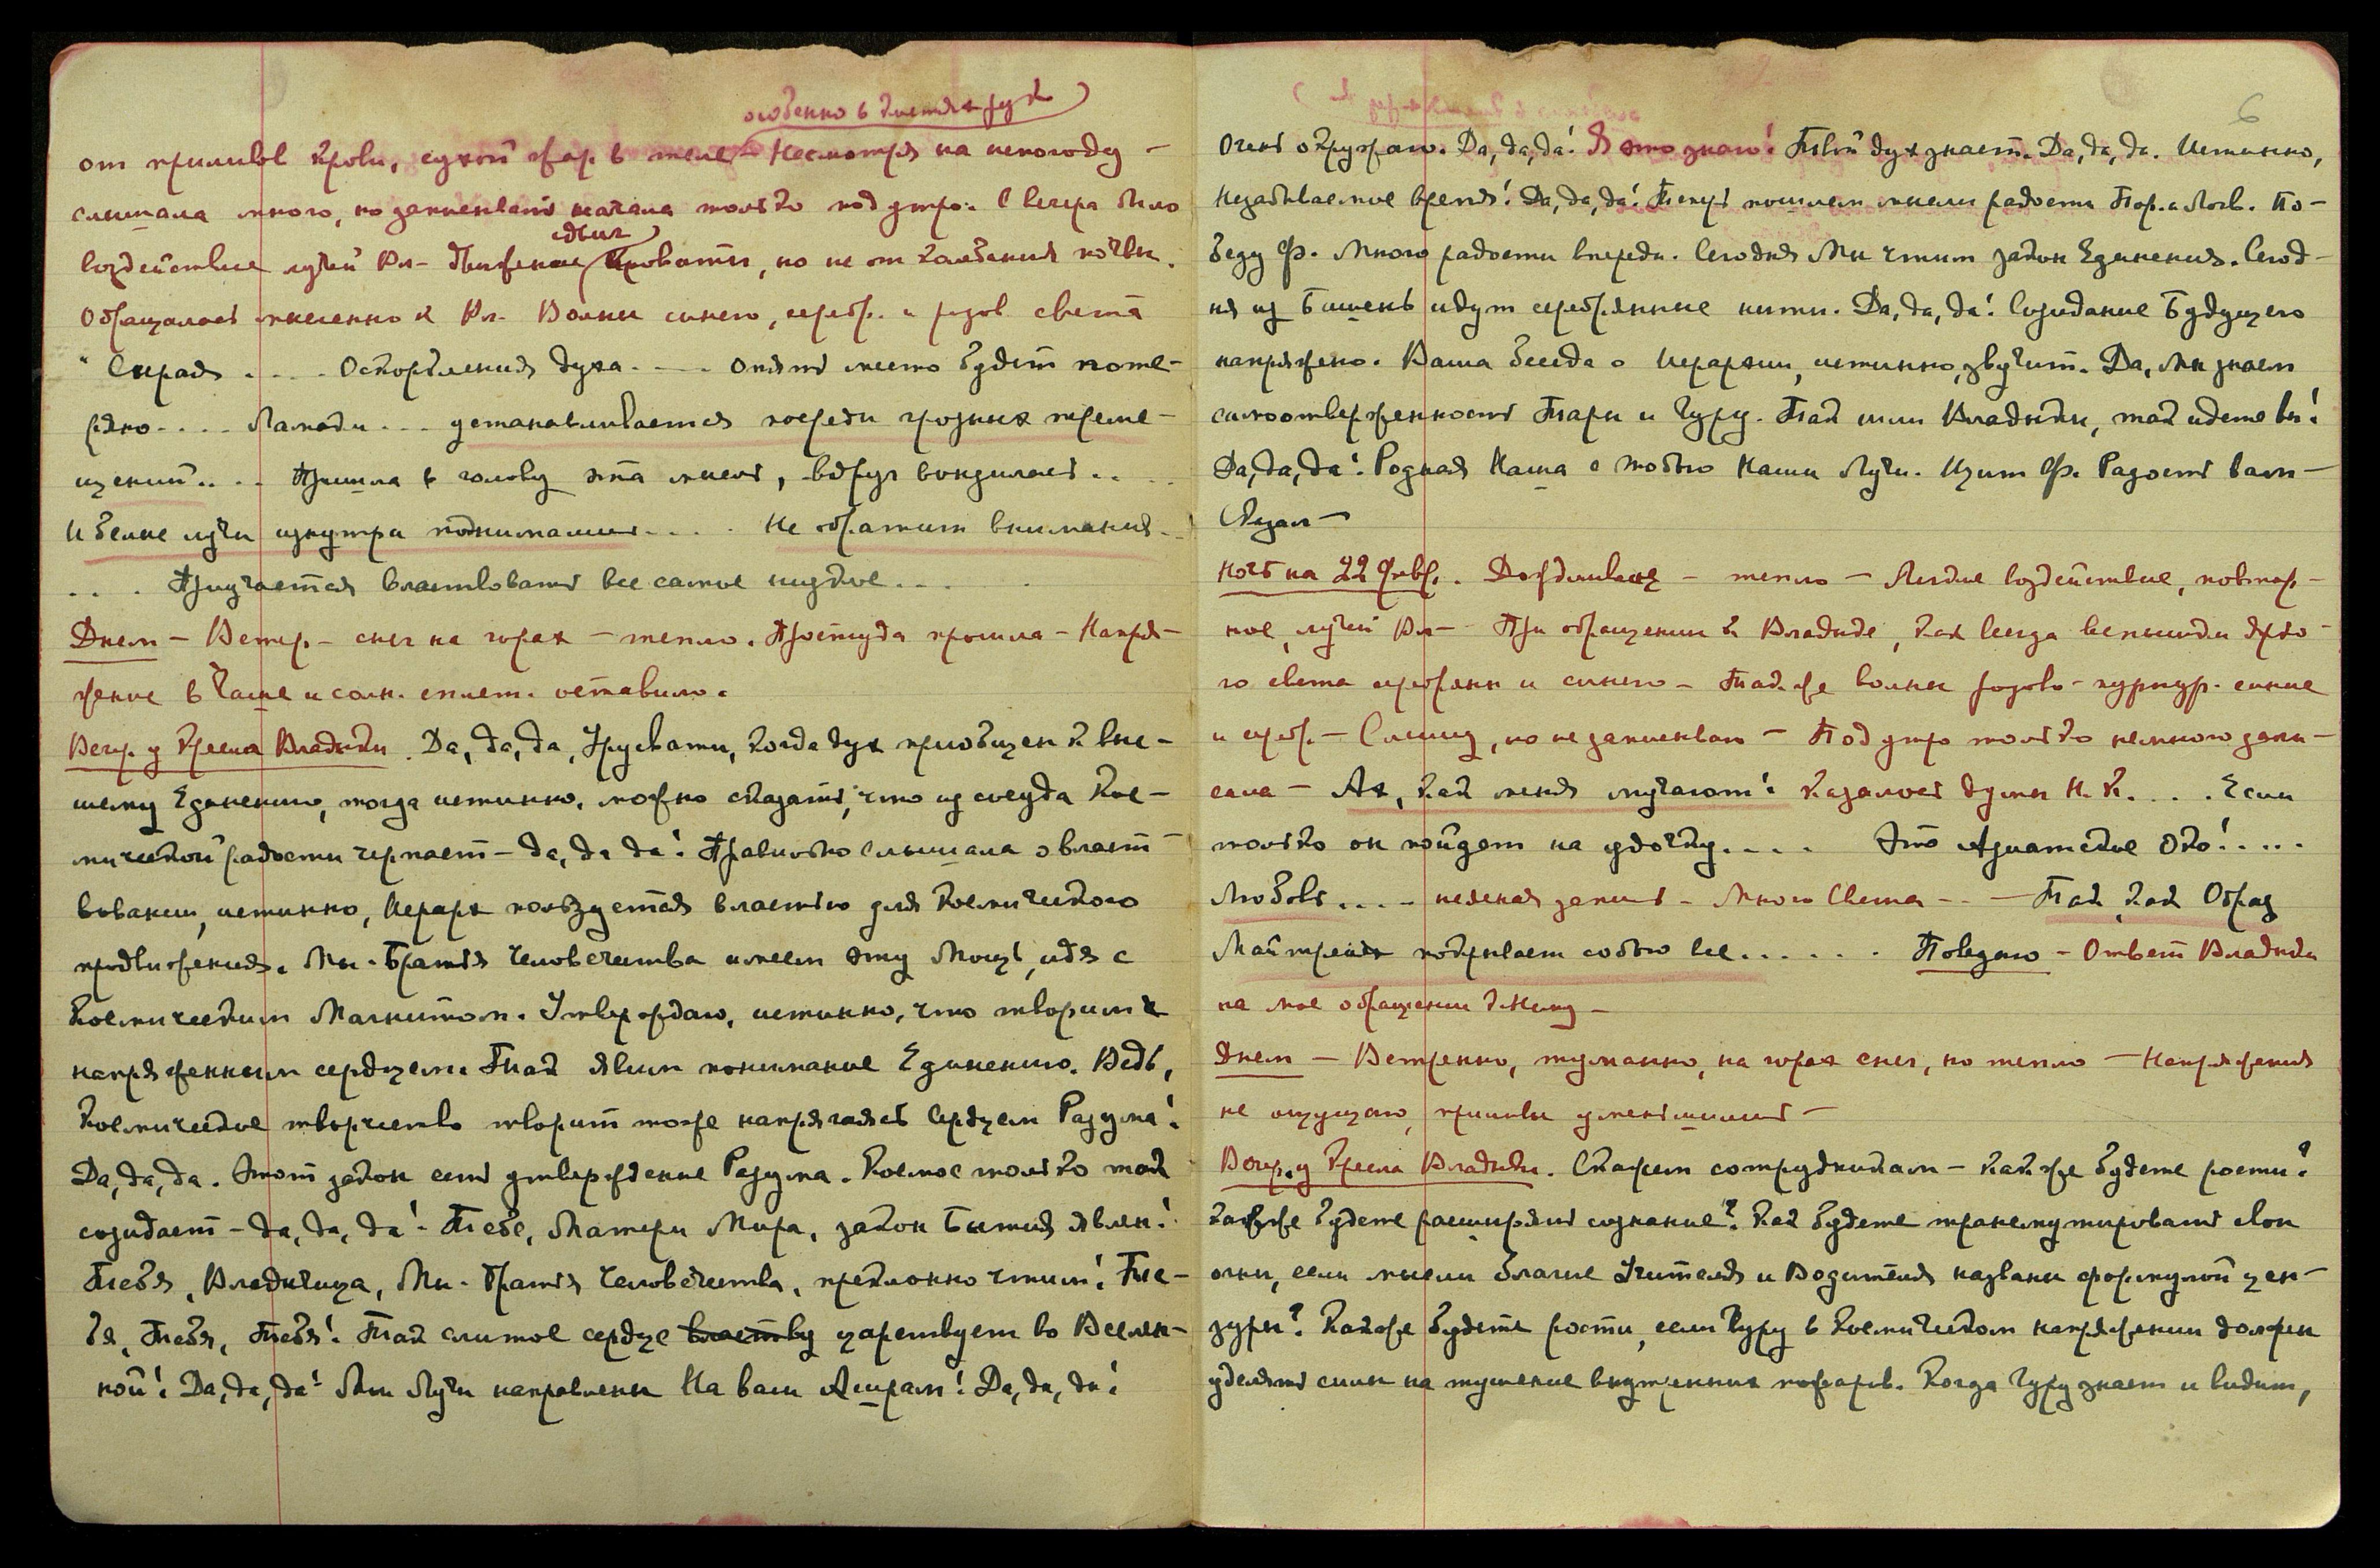 особенно в кистях рук)
от приливов крови, сухой жар в теле – Несмотря на непогоду –
слышала много, но записывать начала только под утро. С вечера было
движ)
воздействие лучей Вл- движение кровати, но не от колебания почвы.
Обращалась мысленно к Вл- Волны синего, серебр. и розов. света
" Спираль .... Оскорбления духа .... опять место будет поте-
ряно .... Ламоды ... устанавливается посреди грозных треще-
щений .... Пришла в голову эта мысль, вдруг вонзилась ....
И белые лучи изнутри поднимались .... Не обратит внимания ...
... Приучается властвовать все самое низкое ....
Днем – Ветер – снег на горах – тепло. Простуда прошла – Напря-
жение в Чаше и солн. сплет. оставило.
Вечер. у Кресла Владыки. Да, да, да, Урусвати, когда дух приобщен к выс-
шему Единению, тогда истинно, можно сказать, что из сосуда Кос-
мической радости черпает – да, да да! Правильно слышала о власт-
вовании, истинно, Иерарх пользуется властью для Космического
продвижения. Мы – Братья Человечества имеем эту Мощь, идя с
Космическим Магнитом. Утверждаю, истинно, что творим
напряженным сердцем. Так явим понимание Единению. Ведь,
Космическое творчество творит тоже напрягаясь Сердцем Разума!
Да, да, да. Этот закон есть утверждение Разума. Космос только так
созидает – да, да, да! Тебе, Матери Мира, закон Бытия явлен!
Тебя, Владычица, Мы – Братья Человечества, преклонно чтим! Те-
бя, Тебя, Тебя! Так слитое сердце властву царствует во Вселен-
ной! Да, да, да! Мы Лучи направлены На ваш Ашрам! Да, да, да!
6
Очень окружаю. Да, да, да! Я это знаю! Твой дух знает. Да, да, да. Истинно,
Незабываемое время! Да, да, да! Теперь пошлем мысли радости Пор. и Логв. По-
беду Ф. Много радости впереди. Сегодня Мы чтим закон Единения. Сегод-
ня из Башень идут серебрянные нити. Да, да, да! Созидание Будущего
напряжено. Ваша беседа о Иерархии, истинно, звучит. Да, мы знаем
самоотверженность Тары и Гуру. Так шли Владыки, так идете вы!
Да, да, да! Родная Наша с тобою Наши Лучи. Щит Ф. Радость вам –
Сказал –
Ночь на 22 февр. Дождливая – тепло – Легкое воздействие, повтор-
ное, лучей Вл – При обращении к Владыке, как всегда вспышки ярко-
го света серебрянн и синего – Также волны розово-пурпур. синие
и серебр. – Слышу, но не записываю – Под утро только немного запи-
сала – Ах, как меня мучают! Казалось думы Н. К. .... Если
только он пойдет на удочку .... Это Азиатское Око! ....
Любовь .... неясная запись – Много Света – – Так, как Образ
Майтрейи покрывает собою все ...... Поведаю – Ответ Владыки
на мое обращении к Нему –
Днем – Ветренно, туманно, на горах снег, но тепло – Напряжения
не ощущаю, приливы уменьшились –
Вечер. у Кресла Владыки. Скажем сотрудникам – как же будете расти?
Как же будете расширять сознание? Как будете трансмутировать свои
огни, если мысли благие Учителя и Водителя названы формулой цен-
зуры? Как же будете расти, если Гуру в Космическом напряжении должен
уделять силы на тушение внутренних пожаров. Когда Гуру знает и видит,